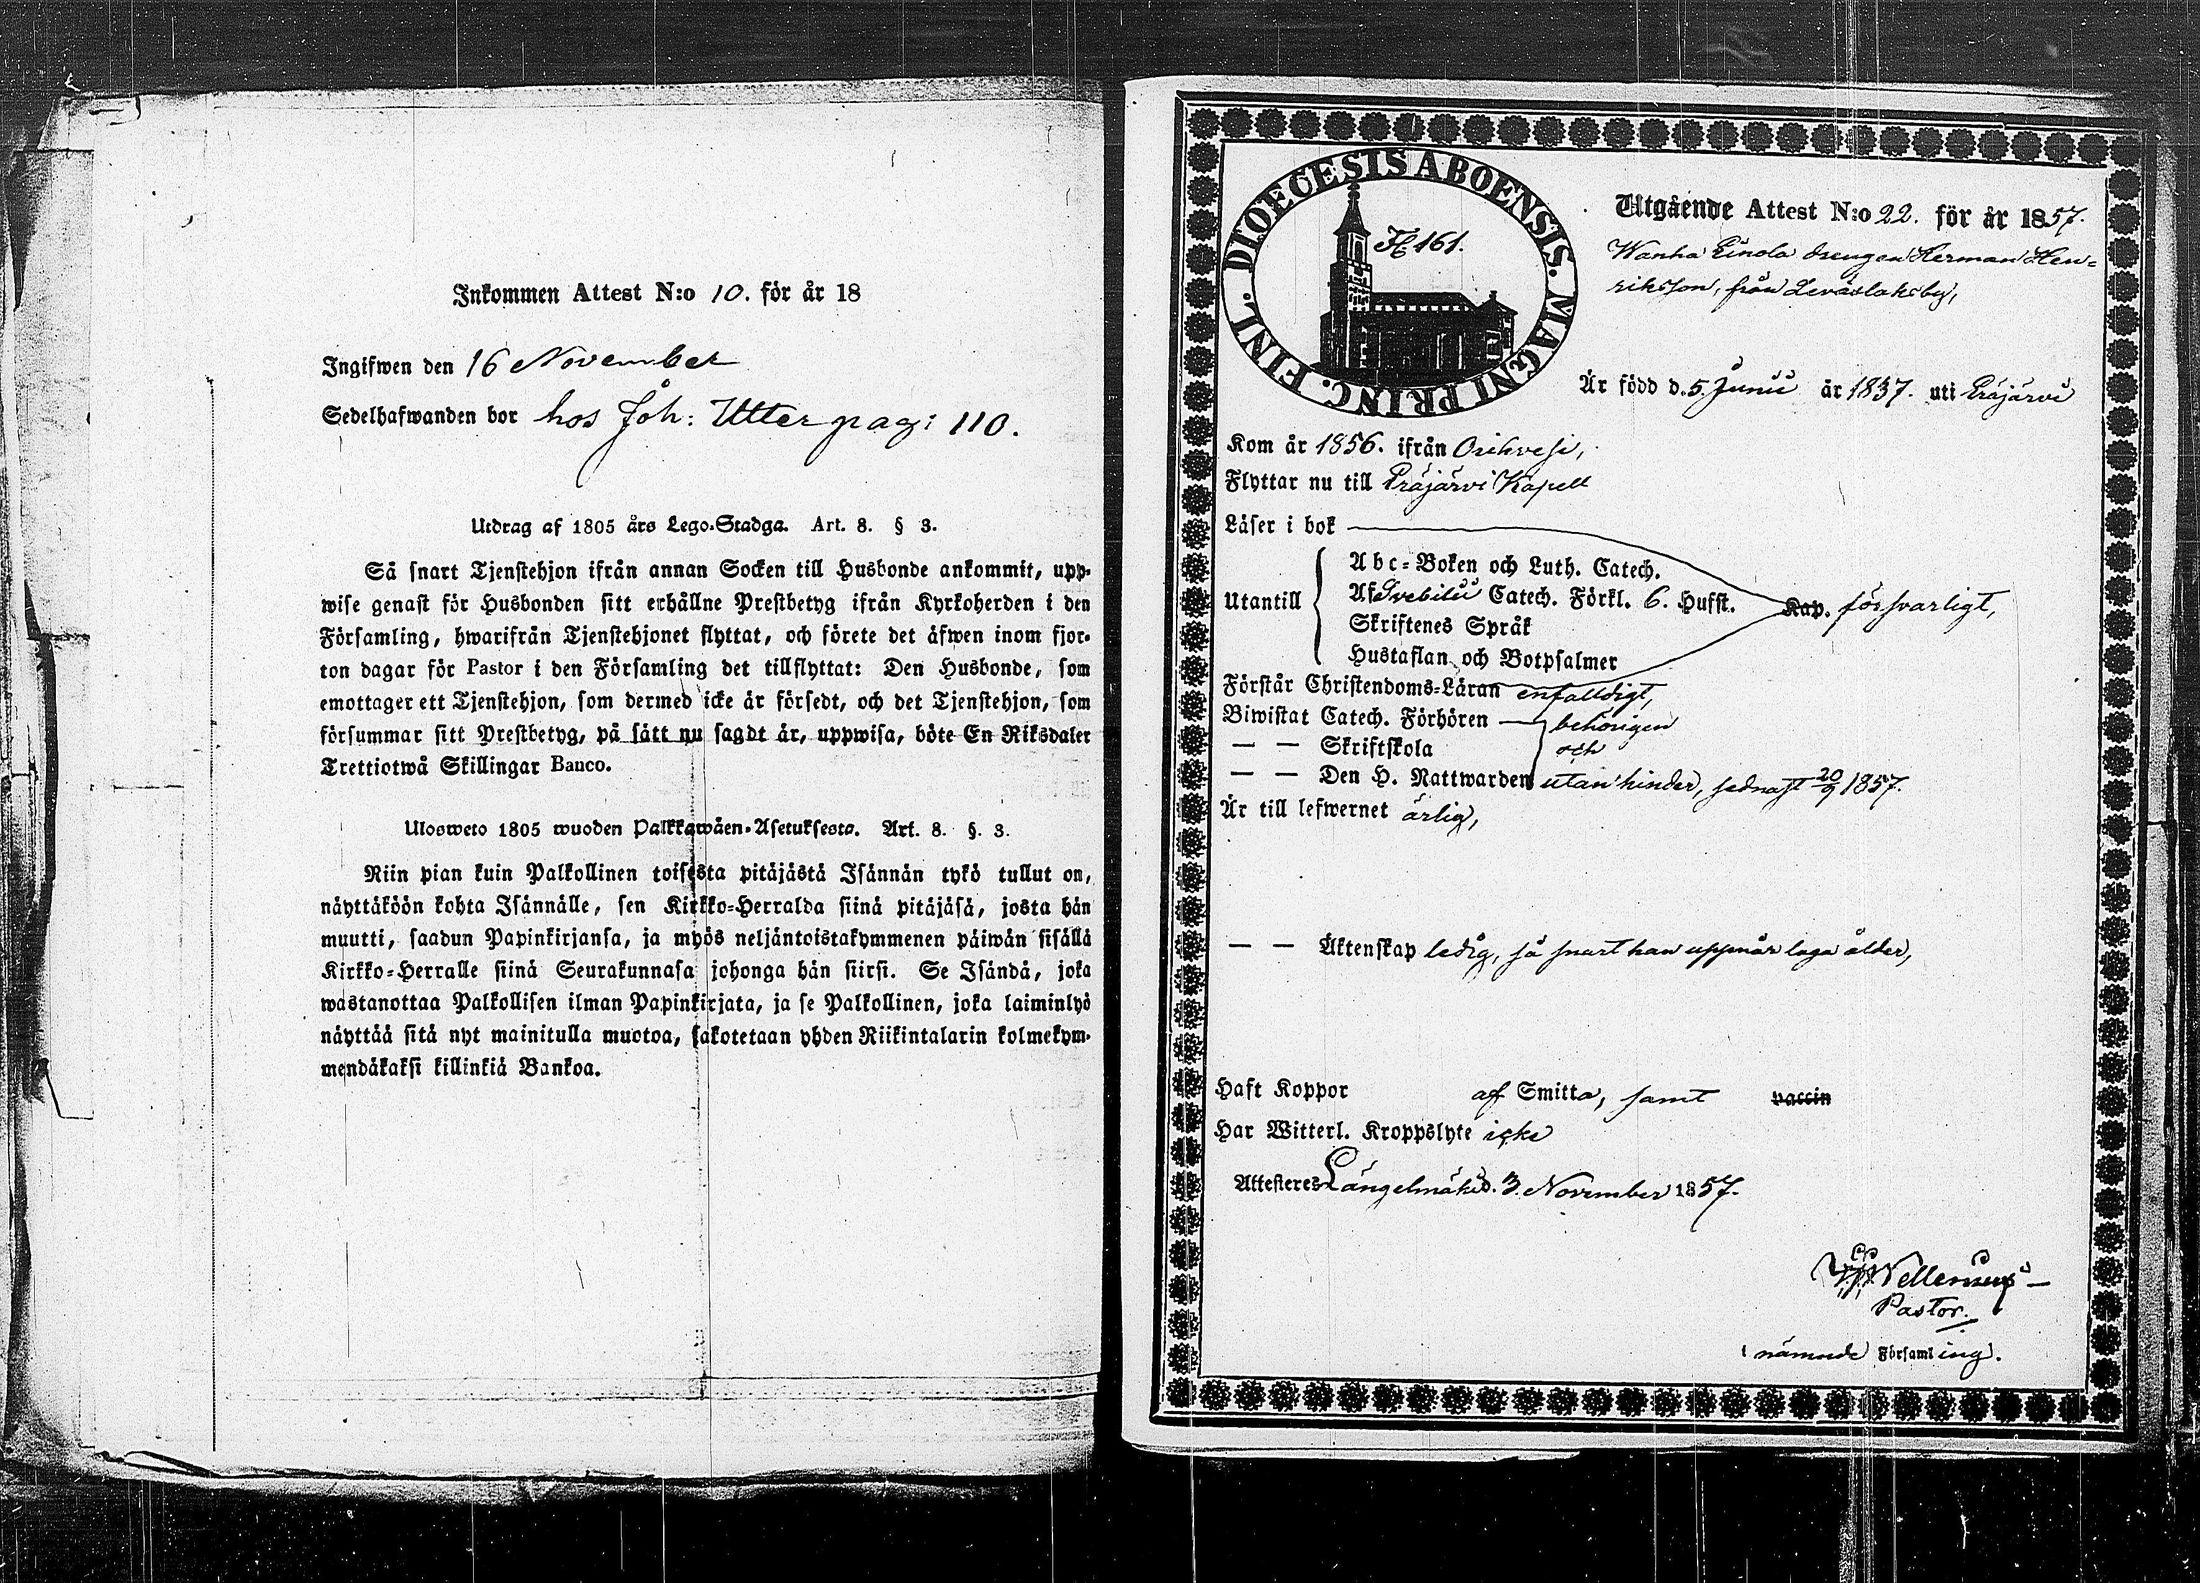 Inkommen Attest N:o 10. för år 18
Ingifwen den 16 November
Sedelhafwanden bor hos Joh: Utter pag: 110.
Utdrag af 1805 års Lego-Stadga. Art. 8. § 3.
Så snart Tjenstehjon ifrån annan Socken till Husbonde ankommit, upp-
wise genast för Husbonden sitt erhållne Prestbetyg ifrån Kyrkoherden i den
Församling, hwarifrån Tjenstehjonet flyttat, och förete det äfwen inom fjor-
ton dagar för Pastor i den Församling det tillflyttat: Den Husbonde, som
emottager ett Tjenstehjon, som dermed icke är försedt, och det Tjenstehjon, som
försummar sitt Prestbetyg, på sätt nu sagdt är, uppwisa, böte En Riksdaler
Trettiotwå Skillingar Banco.
Ulosweto 1805 wuoden Palkkawäen-Asetuksesta. Art. 8. §. 3.
Niin pian kuin Palkollinen toisesta pitäjästä Isännän tykö tullut on,
näyttäköön kohta Isännälle, sen Kirkko-Herralda siinä pitäjäsä, josta hän
muutti, saadun Papinkirjansa, ja myös neljäntoistakymmenen päiwän sisällä
Kirkko-Herralle siinä Seurakunnasa johonga hän siirsi. Se Isändä, joka
wastanottaa Palkollisen ilman Papinkirjata, ja se Palkollinen, joka laiminlyö
näyttää sitä nyt mainitulla muotoa, sakotetaan yhden Riikintalarin kolmekym-
mendäkaksi killinkiä Bankoa.
DIOECESIS ABOENSIS. MAGNI PRINC. FINL.
H. 161.
Utgående Attest N:o 22. för år 1857.
Wanha Einola drengen Herman Hen-
riksson, från Leväslaks by,
Är född d. 5. Junii år 1837. uti Eräjärvi
Kom år 1856. ifrån Orihvesi,
Flyttar nu till Eräjärvi Kapell
Läser i bok
Utantill
Abc-Boken och Luth. Catech.
Af Svebilii Catech. Förkl. 6. Hufst. Kap. försvarligt,
Skriftenes Språk
Hustaflan och Botpsalmer
Förstår Christendoms-Läran enfaldigt,
Biwistat Catech. Förhören behörigen
— — Skriftskola och
— — Den H. Nattwarden utan hinder, sednast 20/9 1857.
Är till lefwernet ärlig,
— — Äktenskap ledig, så snart han uppnår laga ålder,
Haft Koppor af Smitta, samt vaccin
Har Witterl. Kroppslyte icke
Attesteres Längelmäki d. 3. November 1857.
Pastor.
i nämnde Församling.